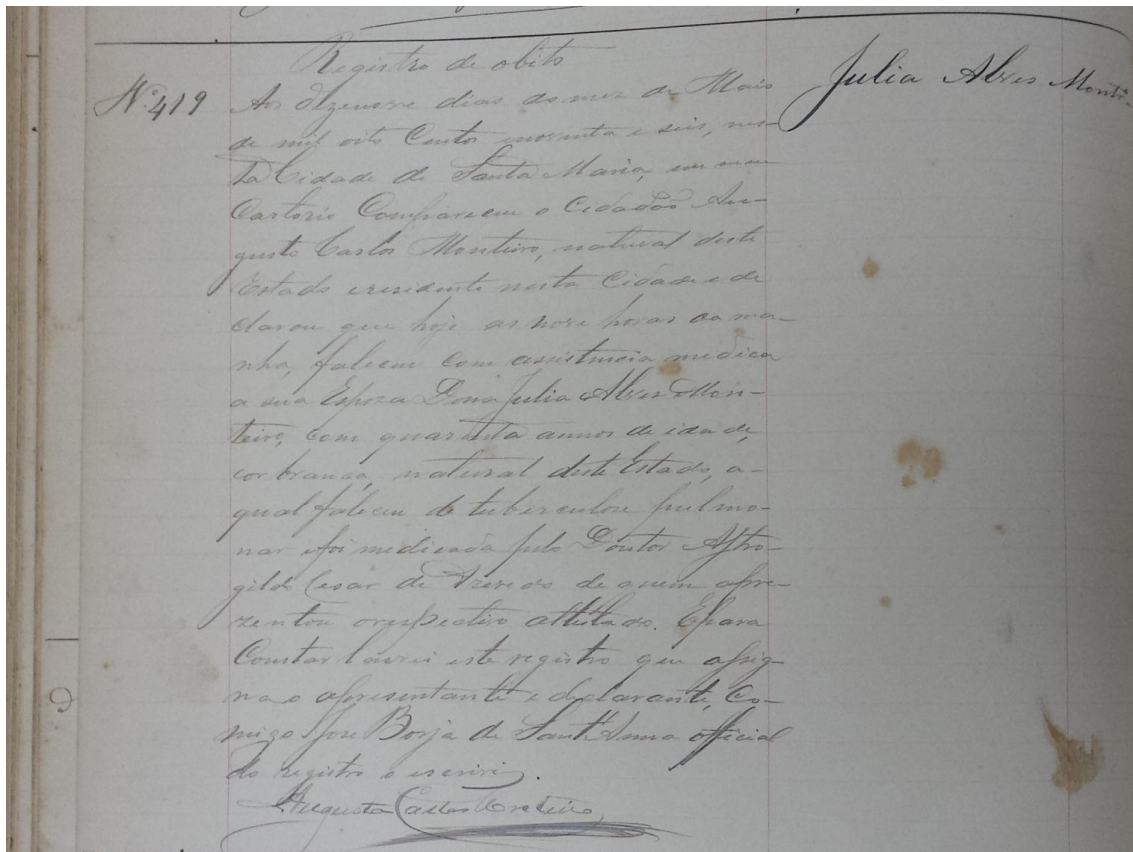 Registro de obito
Julia Alves Montº
Nº 419
Aos dezenove dias do mez de Maio
de mil oito Centos enoventa e seis, nes-
ta Cidade de Santa Maria, em meu
Cartorio Compareceu o Cidadão Au-
gusto Carlos Monteiro, natural deste
Estado eresidente nesta Cidade e de
clarou que hoje as nove horas da ma-
nhã, faleceu com assistencia medica
a sua Espoza Dona Julia Alves Mon-
teiro, com quarenta annos de idade,
cor branca, natural deste Estado, a-
qual faleceu de tuberculose pulmo-
nar efoi medicada pelo Doutor Astro-
gildo Cesar de Azevedo de quem apre-
zentou orespectivo attestado. Epara
Constar lavrei este registro que assig-
na o apresentante e declarante, Co-
migo José Borja de Sant'Anna official
do registro o escrivi.
Augusto Carlos Monteiro